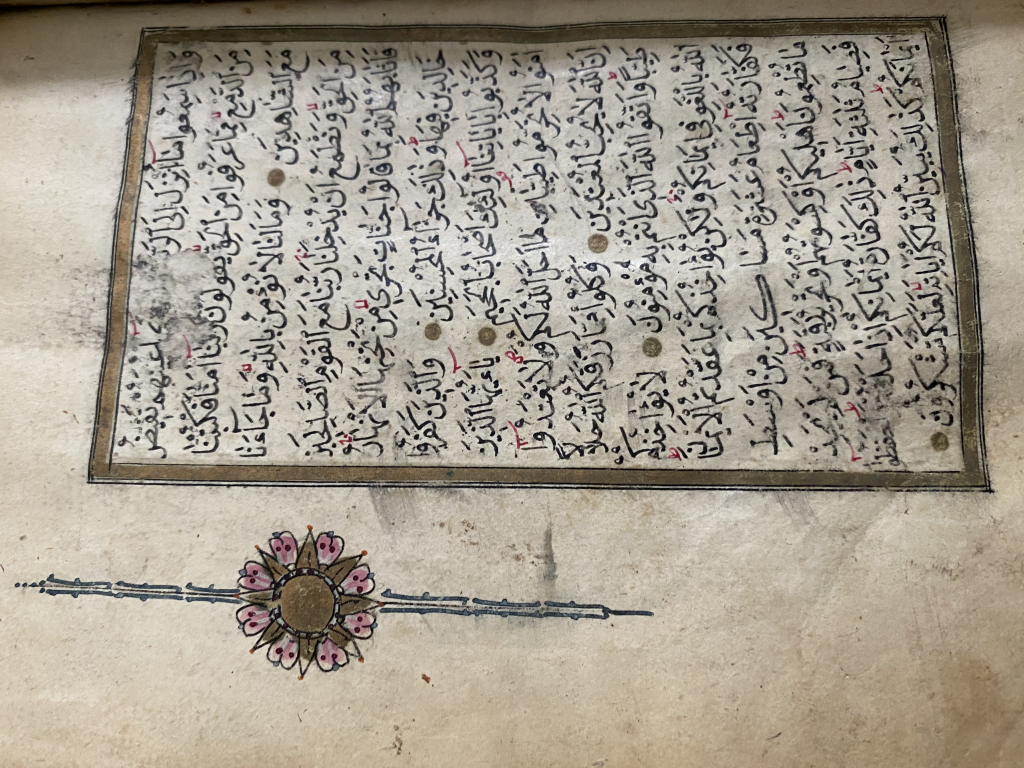 وَإِذَا سَمِعُوا مَا أُنْزِلَ إِلَى أَعْيُنَهُمْ تَفِيضُ
مِنَ الدَّمْعِ مِمَّا عَرَفُوا مِنَ الْحَقِّ يَقُولُونَ رَبَّنَا آمَنَّا فَاكْتُبْنَا
مَعَ الشَّاهِدِينَ وَمَا لَنَا لَا نُؤْمِنُ بِاللَّهِ وَمَا جَاءَنَا
مِنَ الْحَقِّ وَنَطْمَعُ أَنْ يُدْخِلَنَا رَبُّنَا مَعَ الْقَوْمِ الصَّالِحِينَ
فَأَثَابَهُمُ اللَّهُ بِمَا قَالُوا جَنَّاتٍ تَجْرِي مِنْ تَحْتِهَا الْأَنْهَارُ
خَالِدِينَ فِيهَا وَذَلِكَ جَزَاءُ الْمُحْسِنِينَ وَالَّذِينَ كَفَرُوا
وَكَذَّبُوا بِآيَاتِنَا أُولَئِكَ أَصْحَابُ الْجَحِيمِ يَاءَيُّهَا الَّذِينَ
آمَنُوا لَا تُحَرِّمُوا طَيِّبَاتِ مَا أَحَلَّ اللَّهُ لَكُمْ وَلَا تَعْتَدُوا
إِنَّ اللَّهَ لَا يُحِبُّ الْمُعْتَدِينَ وَكُلُوا مِمَّا رَزَقَكُمُ اللَّهُ حَلَالًا
طَيِّبًا وَاتَّقُوا اللَّهَ الَّذِي أَنْتُمْ بِهِ مُؤْمِنُونَ لَا يُؤَاخِذُكُمُ
اللَّهُ بِاللَّغْوِ فِي أَيْمَانِكُمْ وَلَكِنْ يُؤَاخِذُكُمْ بِمَا عَقَّدْتُمُ الْأَيْمَانَ
فَكَفَّارَتُهُ إِطْعَامُ عَشَرَةِ مَسَاكِينَ مِنْ أَوْسَطِ
مَا تُطْعِمُونَ أَهْلِيكُمْ أَوْ كِسْوَتُهُمْ أَوْ تَحْرِيرُ رَقَبَةٍ فَمَنْ لَمْ يَجِدْ
فَصِيَامُ ثَلَاثَةِ أَيَّامٍ ذَلِكَ كَفَّارَةُ أَيْمَانِكُمْ إِذَا حَلَفْتُمْ وَاحْفَظُوا
أَيْمَانَكُمْ كَذَلِكَ يُبَيِّنُ اللَّهُ لَكُمْ آيَاتِهِ لَعَلَّكُمْ تَشْكُرُونَ